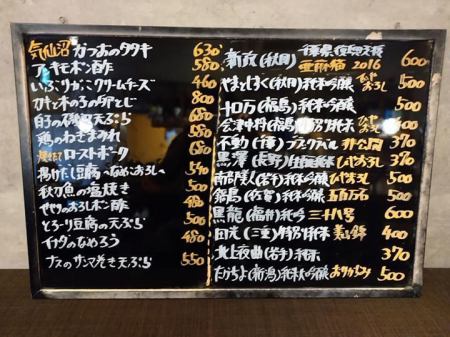 気仙沼 かつおのタタキ 630
アンキモポン酢 580
いぶりがっこクリームチーズ 460
カキと木の子の卵とじ 800
白子の天ぷら 680
鶏のねぎまみれ 580
ローストポーク 680
揚げだし豆腐 なめこおろし 540
秋刀魚の塩焼き 500
おろしポン酢 500
とろーり豆腐の天ぷら 500
イナダのなめろう 480
ナスのサンマ巻き天ぷら 550
新政(秋田) 亜麻猫 2016 600
やまとしずく(秋田)純米吟醸 ひやおろし 500
ロ万(福島)純米吟醸 500
会津中将(福島)特別純米 ひやおろし 500
不動(千葉)ブラックラベル 非公開 370
黒澤(長野)生酛純米 ひやおろし 370
南部美人(岩手)純米吟醸 ひやおろし 500
鍋島(佐賀)純米吟醸 五百万石 500
黒龍(福井)純吟 三十八号 600
田光(三重)特別純米 美山錦 400
北上夜曲(岩手)純米 370
たかちよ(新潟)純米吟醸 おりがらみ 500